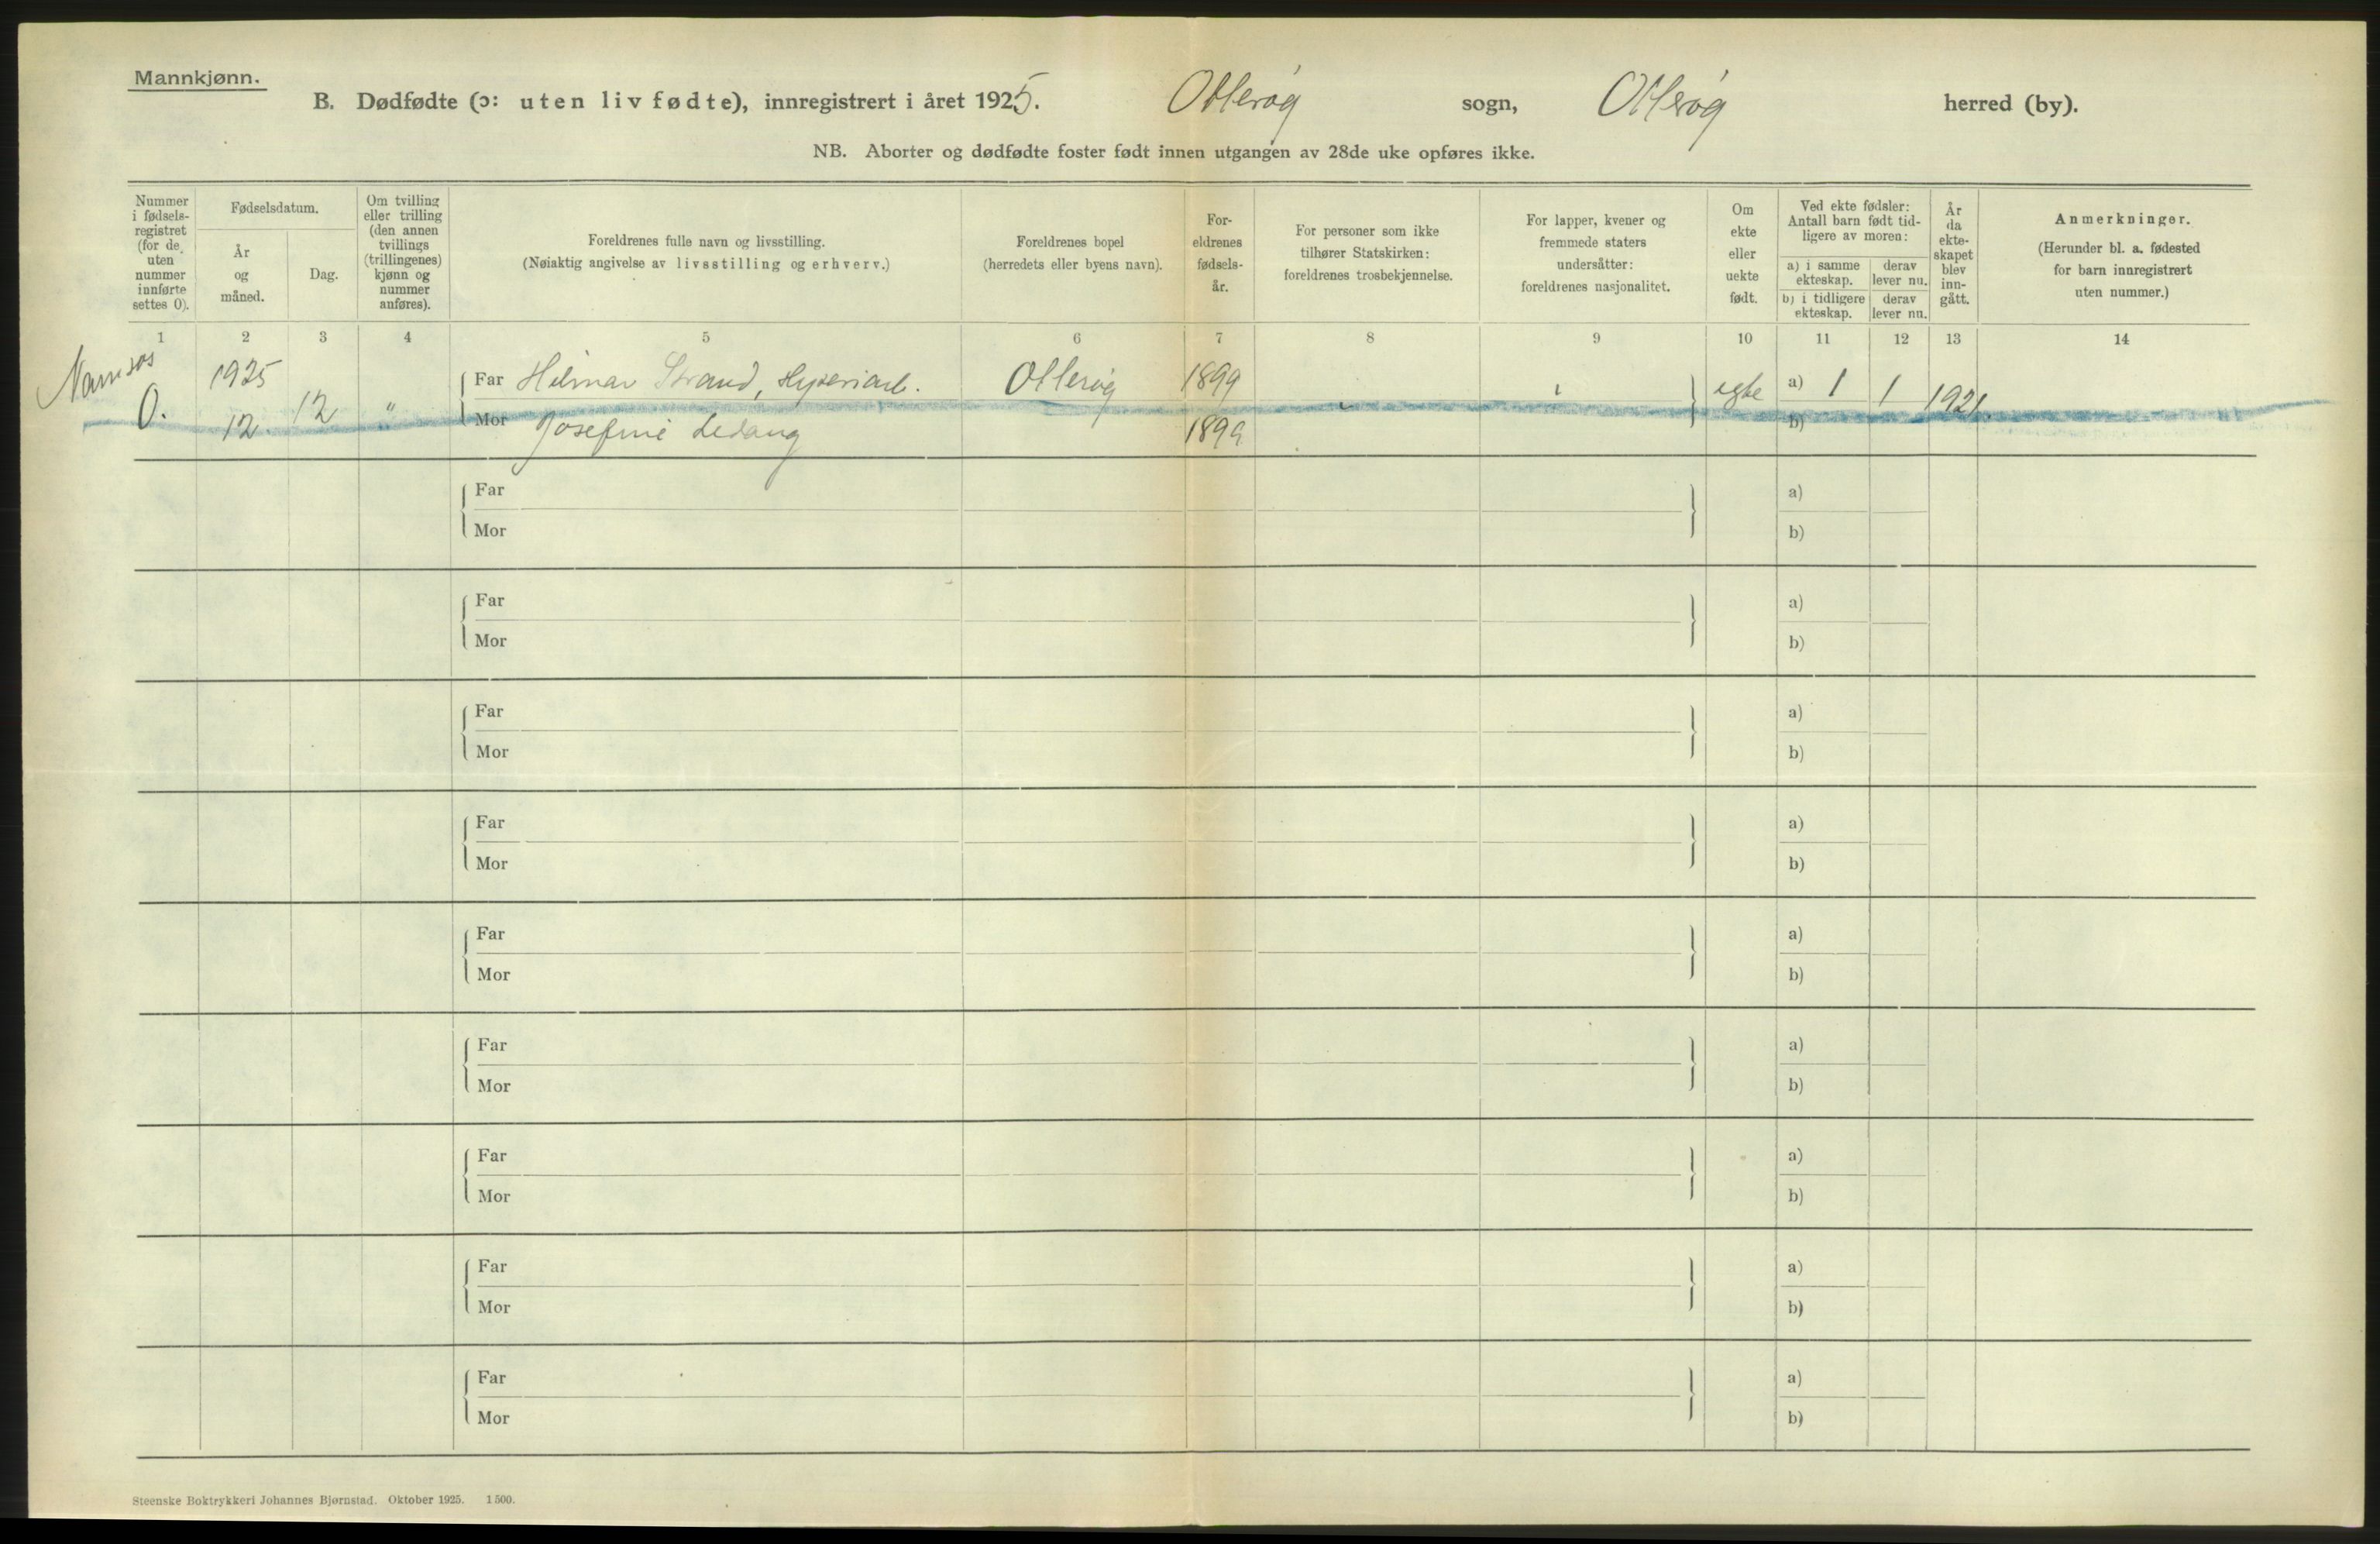 Mannkjønn.
B. Dødfødte (ɔ: uten liv fødte), innregistrert i året 1925. Otterøy sogn, Otterøy herred (by).
NB. Aborter og dødfødte foster født innen utgangen av 28de uke opføres ikke.
Nummer
i fødsels-
registret
(for de
uten
nummer
innførte
settes 0).
Fødselsdatum.
År
og
måned.
Dag.
Om tvilling
eller trilling
(den annen
tvillings
(trillingenes)
kjønn og
nummer
anføres).
Foreldrenes fulle navn og livsstilling.
(Nøiaktig angivelse av livsstilling og erhverv.)
Foreldrenes bopel
(herredets eller byens navn).
For-
eldrenes
fødsels-
år.
For personer som ikke
tilhører Statskirken:
foreldrenes trosbekjennelse.
For lapper, kvener og
fremmede staters
undersåtter:
foreldrenes nasjonalitet.
Om
ekte
eller
uekte
født.
Ved ekte fødsler:
Antall barn født tid-
ligere av moren:
a) i samme
ekteskap.
derav
lever nu.
b) i tidligere
ekteskap.
derav
lever nu.
År
da
ekte-
skapet
blev
inn-
gått.
Anmerkninger.
(Herunder bl. a. fødested
for barn innregistrert
uten nummer.)
1 2 3 4 5 6 7 8 9 10 11 12 13 14
Namsos
0. 1925 12. 12 "
Far Hilmar Strand, Otterøy 1899 egte a) 1 1 1921.
Mor Josefine Ledang 1899 b)
Far a)
Mor b)
Far a)
Mor b)
Far a)
Mor b)
Far a)
Mor b)
Far a)
Mor b)
Far a)
Mor b)
Far a)
Mor b)
Far a)
Mor b)
Far a)
Mor b)
Steenske Boktrykkeri Johannes Bjørnstad. Oktober 1925. 1500.